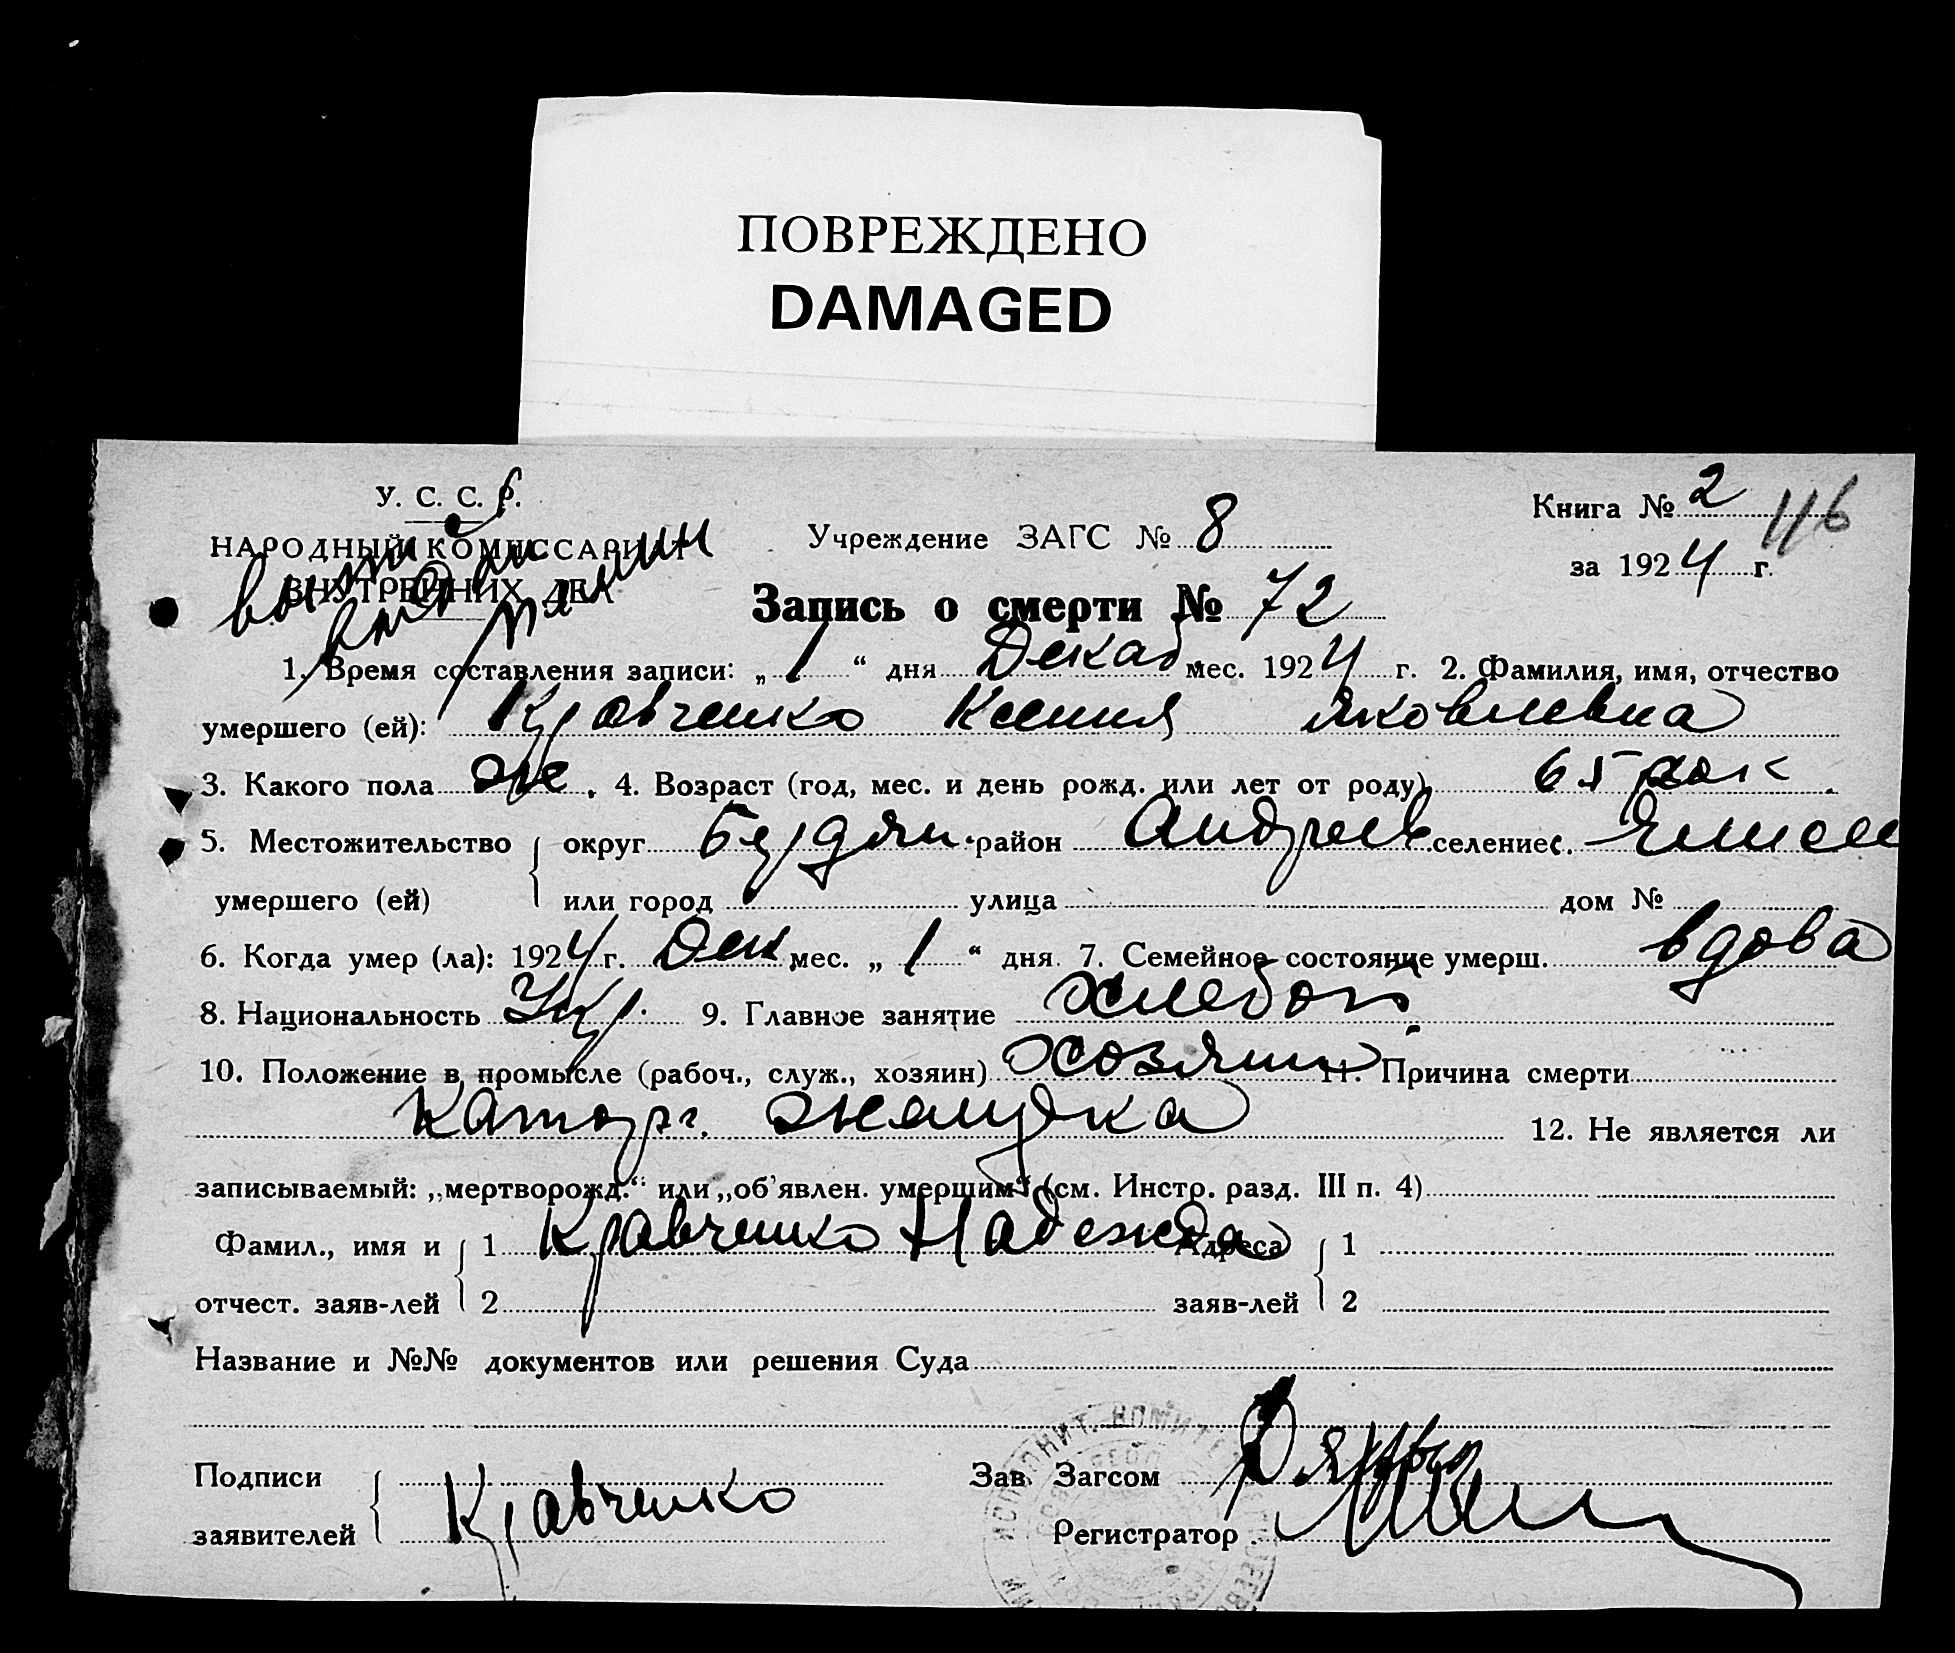 ПОВРЕЖДЕНО
DAMAGED
У. С. С. Р.
НАРОДНЫЙ КОМИССАРИАТ
ВНУТРЕННИХ ДЕЛ
Учреждение ЗАГС № 8
Книга № 2 116
за 1924 г.
Запись о смерти № 72
1. Время составления записи: „ 1 “ дня Декаб мес. 1924 г. 2. Фамилия, имя, отчество
умершего (ей): Кравченко Ксения Яковлевна
3. Какого пола же. 4. Возраст (год, мес. и день рожд. или лет от роду) 65
5. Местожительство округ Бердян. район Андреев. селение с.
умершего (ей) или город улица дом №
6. Когда умер (ла): 1924 г. Дек мес. „ 1 “ дня. 7. Семейное состояние умерш. вдова
8. Национальность Укр. 9. Главное занятие хлебоп.
10. Положение в промысле (рабоч., служ., хозяин) хозяин 11. Причина смерти
желудка 12. Не является ли
записываемый: „мертворожд.“ или „об'явлен. умершим“ (см. Инстр. разд. III п. 4)
Фамил., имя и 1 Кравченко Надежда Адреса 1
отчест. заяв-лей 2 заяв-лей 2
Название и №№ документов или решения Суда
Подписи Зав. Загсом
Кравченко
заявителей Регистратор